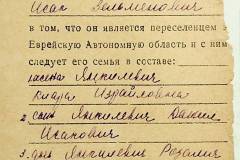 Исак Зельменович
в том, что он является переселенцем в
Еврейскую Автономную область и с ним
следует его семья в составе:
жена Янкилевич
Клара Израйловна
2. сын Янкилевич Даниил
Исакович
3. дочь Янкилевич Розалия